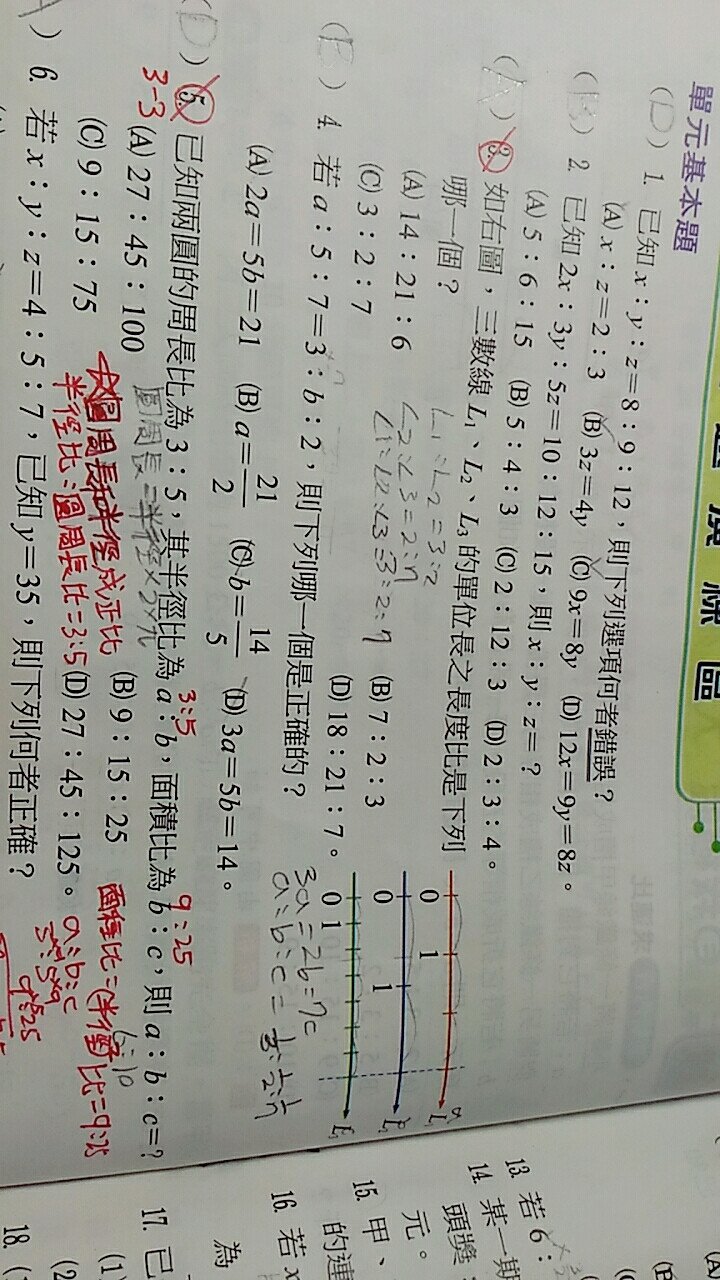 練區
單元基本題
(D) 1. 已知 x：y：z＝8：9：12，則下列選項何者錯誤？
(A) x：z＝2：3 (B) 3z＝4y (C) 9x＝8y (D) 12x＝9y＝8z。
(B) 2. 已知 2x：3y：5z＝10：12：15，則 x：y：z＝？
(A) 5：6：15 (B) 5：4：3 (C) 2：12：3 (D) 2：3：4。
(A) 3. 如右圖，三數線 L₁、L₂、L₃ 的單位長之長度比是下列
哪一個？
L₁：L₂＝3：2
(A) 14：21：6
(B) 7：2：3
L₂：L₃＝2：7
(C) 3：2：7
L₁：L₂：L₃＝3：2：7
(D) 18：21：7。
0 1 L₁
0 1 L₂
0 1 L₃
(B) 4. 若 a：5：7＝3：b：2，則下列哪一個是正確的？
3a＝2b＝7c
a：b：c＝
(A) 2a＝5b＝21 (B) a＝21/2 (C) b＝14/5 (D) 3a＝5b＝14。
3：5
9：25
(D) 5. 已知兩圓的周長比為 3：5，其半徑比為 a：b，面積比為 b：c，則 a：b：c＝？
3-3
圓周長＝半徑×2×π
6：10
(A) 27：45：100
(B) 9：15：25
圓周長和半徑成正比
面積比＝(半徑)比＝9：25
(C) 9：15：75
半徑比＝圓周長比＝3：5
(D) 27：45：125。
a：b：c
9：25
) 6. 若 x：y：z＝4：5：7，已知 y＝35，則下列何者正確？
13. 若 6：
14. 某一期
頭獎：
元。
15. 甲、
的連
16. 若 x
為
17. 已
(1)
(2
18. (